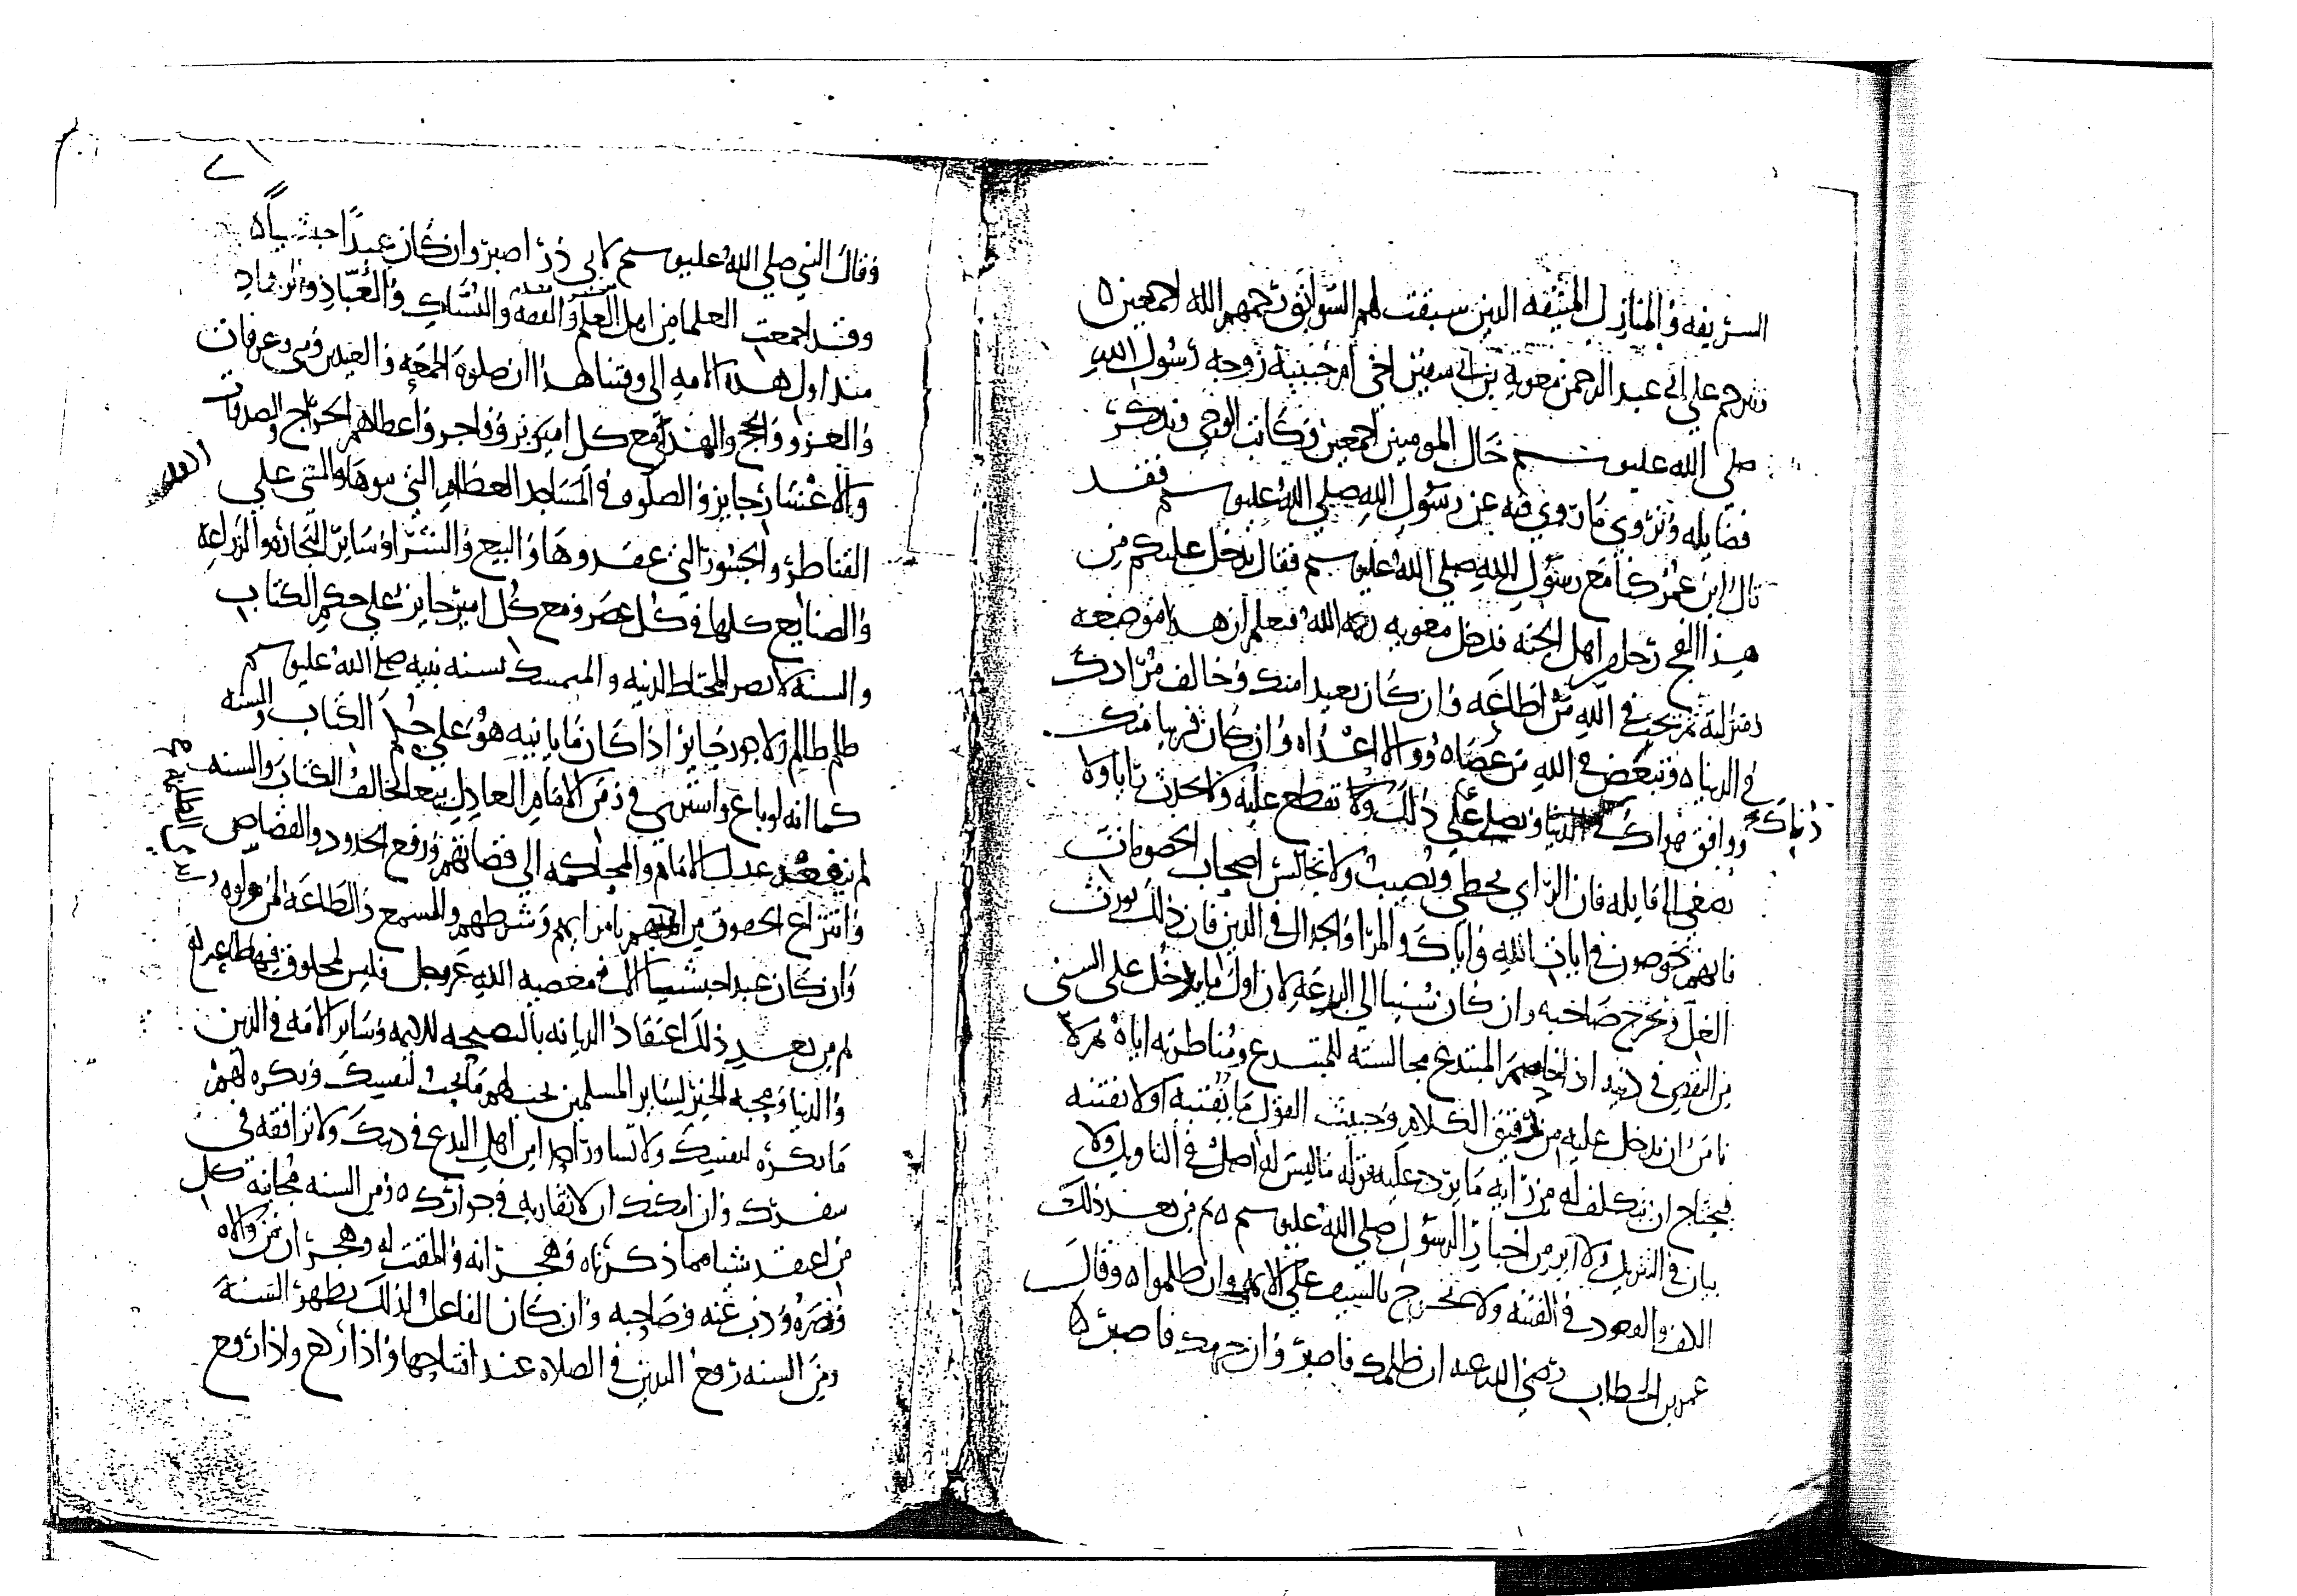 الشريفه والمنازل المنيفه الذين سبقت لهم السوابق رحمهم الله اجمعين ه
نترحم علي ابي عبد الرحمن معويه بن ابي سفين اخي ام حبيبه زوجه رسول الله
صلي الله عليه وسلم خال المومنين اجمعين وكاتب الوحي ونذكر
فضايله ونروي ما روي فيه عن رسول الله صلي الله عليه وسلم فقد
قال ابن عمر كنا مع رسول الله صلي الله عليه وسلم فقال يدخل عليكم من
هذا الفج رجل من اهل الجنه فدخل معويه رحمه الله فتعلم ان هذا موضعه
ومنزلته ثم تحب في الله من اطاعه وان كان بعيدا منك وخالف مرادك
في الدنيا ه وتبغض في الله من عصاه ووالا اعداه وان كان قريبا منك
ووافق هواك في دنياك وتصل علي ذلك وتقطع عليه ولا تحدث رايا ولا
تصغي الي قايله فان الراي يخطي ويصيب ولا تجالس اصحاب الخصومات
فانهم يخوضون في ايات الله واياك والمرا والجدال في الدين فان ذلك يورث
الغل ويخرج صاحبه وان كان سنيا الي البدعه لان اول ما يدخل علي السني
من النقص في دينه اذا خاصم المبتدع مجالسته للمبتدع ومناظرته اياه ثم لا
نامن ان يدخل عليه من دقيق الكلام وخبيث القول ما يفتنه اولا يفتنه
فيحتاج ان يتكلف له من رايه ما يرد عليه قوله ما ليس له اصل في التاويل ولا
بيان في التنزيل ولا اثر من اخبار الرسول صلي الله عليه وسلم ه ثم من بعد ذلك
الكف والقعود في الفتنه ولا تخرج بالسيف علي الايمه وان ظلموا ه وقال
عمر بن الخطاب رضي الله عنه ان ظلمك فاصبر وان حرمك فاصبر ه
وقال النبي صلي الله عليه وسلم لابي ذر اصبر وان كان عبدا حبشيا ه
وقد اجمعت العلما من اهل العلم والفقه والنساك والعباد والزهاد
منذ اول هذه الامه الي وقتنا هذا ان صلوة الجمعه والعيدين ومني وعرفات
والغزو والحج والهدي مع كل امير بر وفاجر واعطاهم الخراج والصدقات
والاعشار جايز والصلوة في المساجد العظام التي بنوها والمشي علي
القناطر والجسور التي عقدوها والبيع والشرا وساير التجاره والزراعه
والصنايع كلها في كل عصر ومع كل امير جايز علي حكم الكتاب
والسنه لا يضر المحتاط لدينه والمتمسك بسنه نبيه صلي الله عليه وسلم
ظلم ظالم ولا جور جاير اذا كان ما ياتيه هو علي حكم الكتاب والسنه
كما انه لو باع واشتري في زمن الامام العادل بيعا يخالف الكتاب والسنه
لم ينفعه عدل الامام والمحاكمه الي قضاتهم ورفع الحدود والقصاص
وانتزاع الحقوق من ايدي الظلمه بامرايهم وشرطهم والسمع والطاعه لمن ولوه
وان كان عبدا حبشيا الا في معصيه الله عز وجل فليس لمخلوق فيها طاعه
ثم من بعد ذلك اعتقاد الديانه بالنصيحه للايمه وساير الامه في الدين
والدنيا ومحبه الخير لساير المسلمين تحب لهم ما تحب لنفسك وتكره لهم
ما تكره لنفسك ولا تشاور احدا من اهل البدع في دينك ولا ترافقه في
سفرك وان امكنك ان لا تقاربه في جوارك ه ومن السنه مجانبة كل
من اعتقد شيا مما ذكرناه وهجرانه والمقت له وهجران من والاه
ونصره وذب عنه وصاحبه وان كان الفاعل لذلك يظهر السنه
ومن السنه رفع اليدين في الصلاه عند افتتاحها واذا ركع واذا رفع